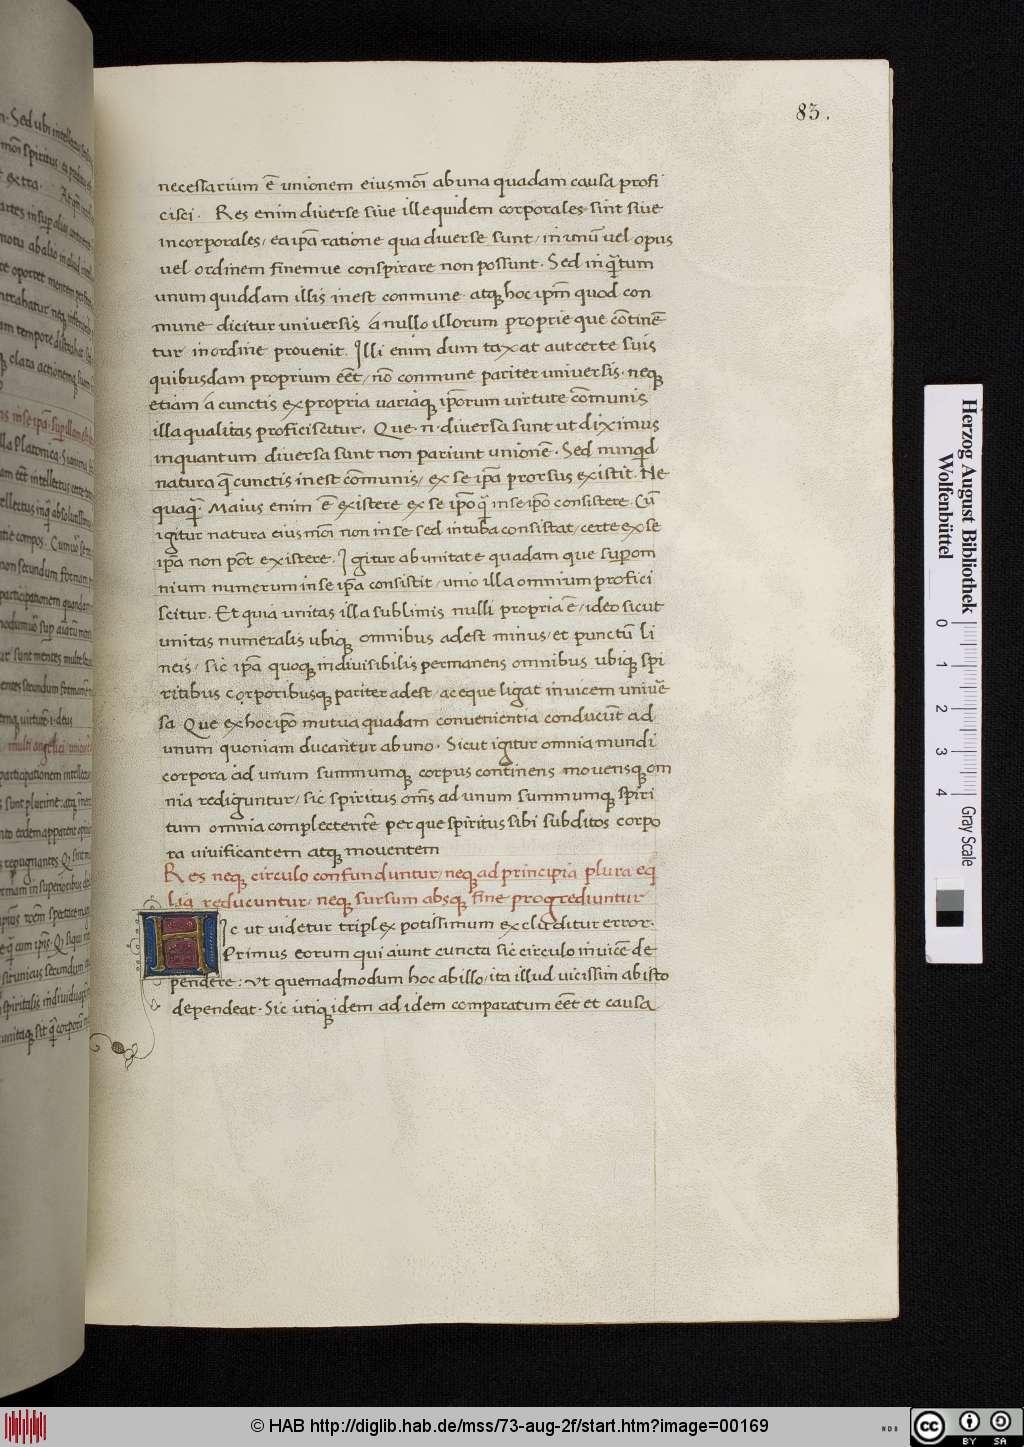 83.
necessarium ē unionem eiusmōi ab una quadam causa profi
cisci. Res enim diverse sive ille quidem corporales sint sive
incorporales / ea ipā ratione qua diverse sunt / in unū vel opus
vel ordinem finemve conspirare non possunt. Sed inq̄tum
unum quiddam illis inest conmune atq; hoc ipm̄ quod con
mune dicitur universis á nullo illorum proprie que cōtinē
tur in ordine provenit. Illi enim dum taxat aut certe suis
quibusdam proprium eēt / nō conmune pariter universis. neq;
etiam á cunctis ex propria variaq; ipōrum virtute cōmunis
illa qualitas proficiscitur. Que .n. diversa sunt ut diximus
inquantum diversa sunt non pariunt unionē. Sed nunqd
natura q̄ cunctis inest cōmunis / ex se ipā prorsus existit. Ne
quaq̄. Maius enim ē existere ex se ipō q̄ in se ipō consistere. Cū
igitur natura eiusmōi non in se sed in tuba consistat / certe ex se
ipā non pōt existere. Igitur ab unitate quadam que sup om
nium numerum in se ipā consistit / unio illa omnium profici
scitur. Et quia unitas illa sublimis nulli propria ē / ideo sicut
unitas numeralis ubiq; omnibus adest minus / et punctū li
neis / sic ipā quoq; indivisibilis permanens omnibus ubiq; spi
ritibus corporibusq; pariter adest / ac eque ligat invicem univē
sa Que ex hoc ipō mutua quadam convenientia conducūt ad
unum quoniam ducantur ab uno. Sicut igitur omnia mundi
corpora ad unum summumq; corpus continens movensq; om
nia rediguntur / sic spiritus om̄s ad unum summumq; spiri
tum omnia complectentē per que spiritus sibi subditos corpo
ra vivificantem atq; moventem
Res neq; circulo confunduntur / neq; ad principia plura eq
lia reducuntur / neq; sursum absq; fine progrediuntur
HIc ut videtur triplex potissimum excluditur error.
Primus eorum qui aiunt cuncta sic circulo invicē de
pendere: ut quemadmodum hoc ab illo / ita illud vicissim ab isto
dependeat. Sic utiq; idem ad idem comparatum eēt et causa
Herzog August Bibliothek
Wolfenbüttel
0 1 2 3 4
Gray Scale
© HAB http://diglib.hab.de/mss/73-aug-2f/start.htm?image=00169
WDB
cc BY SA